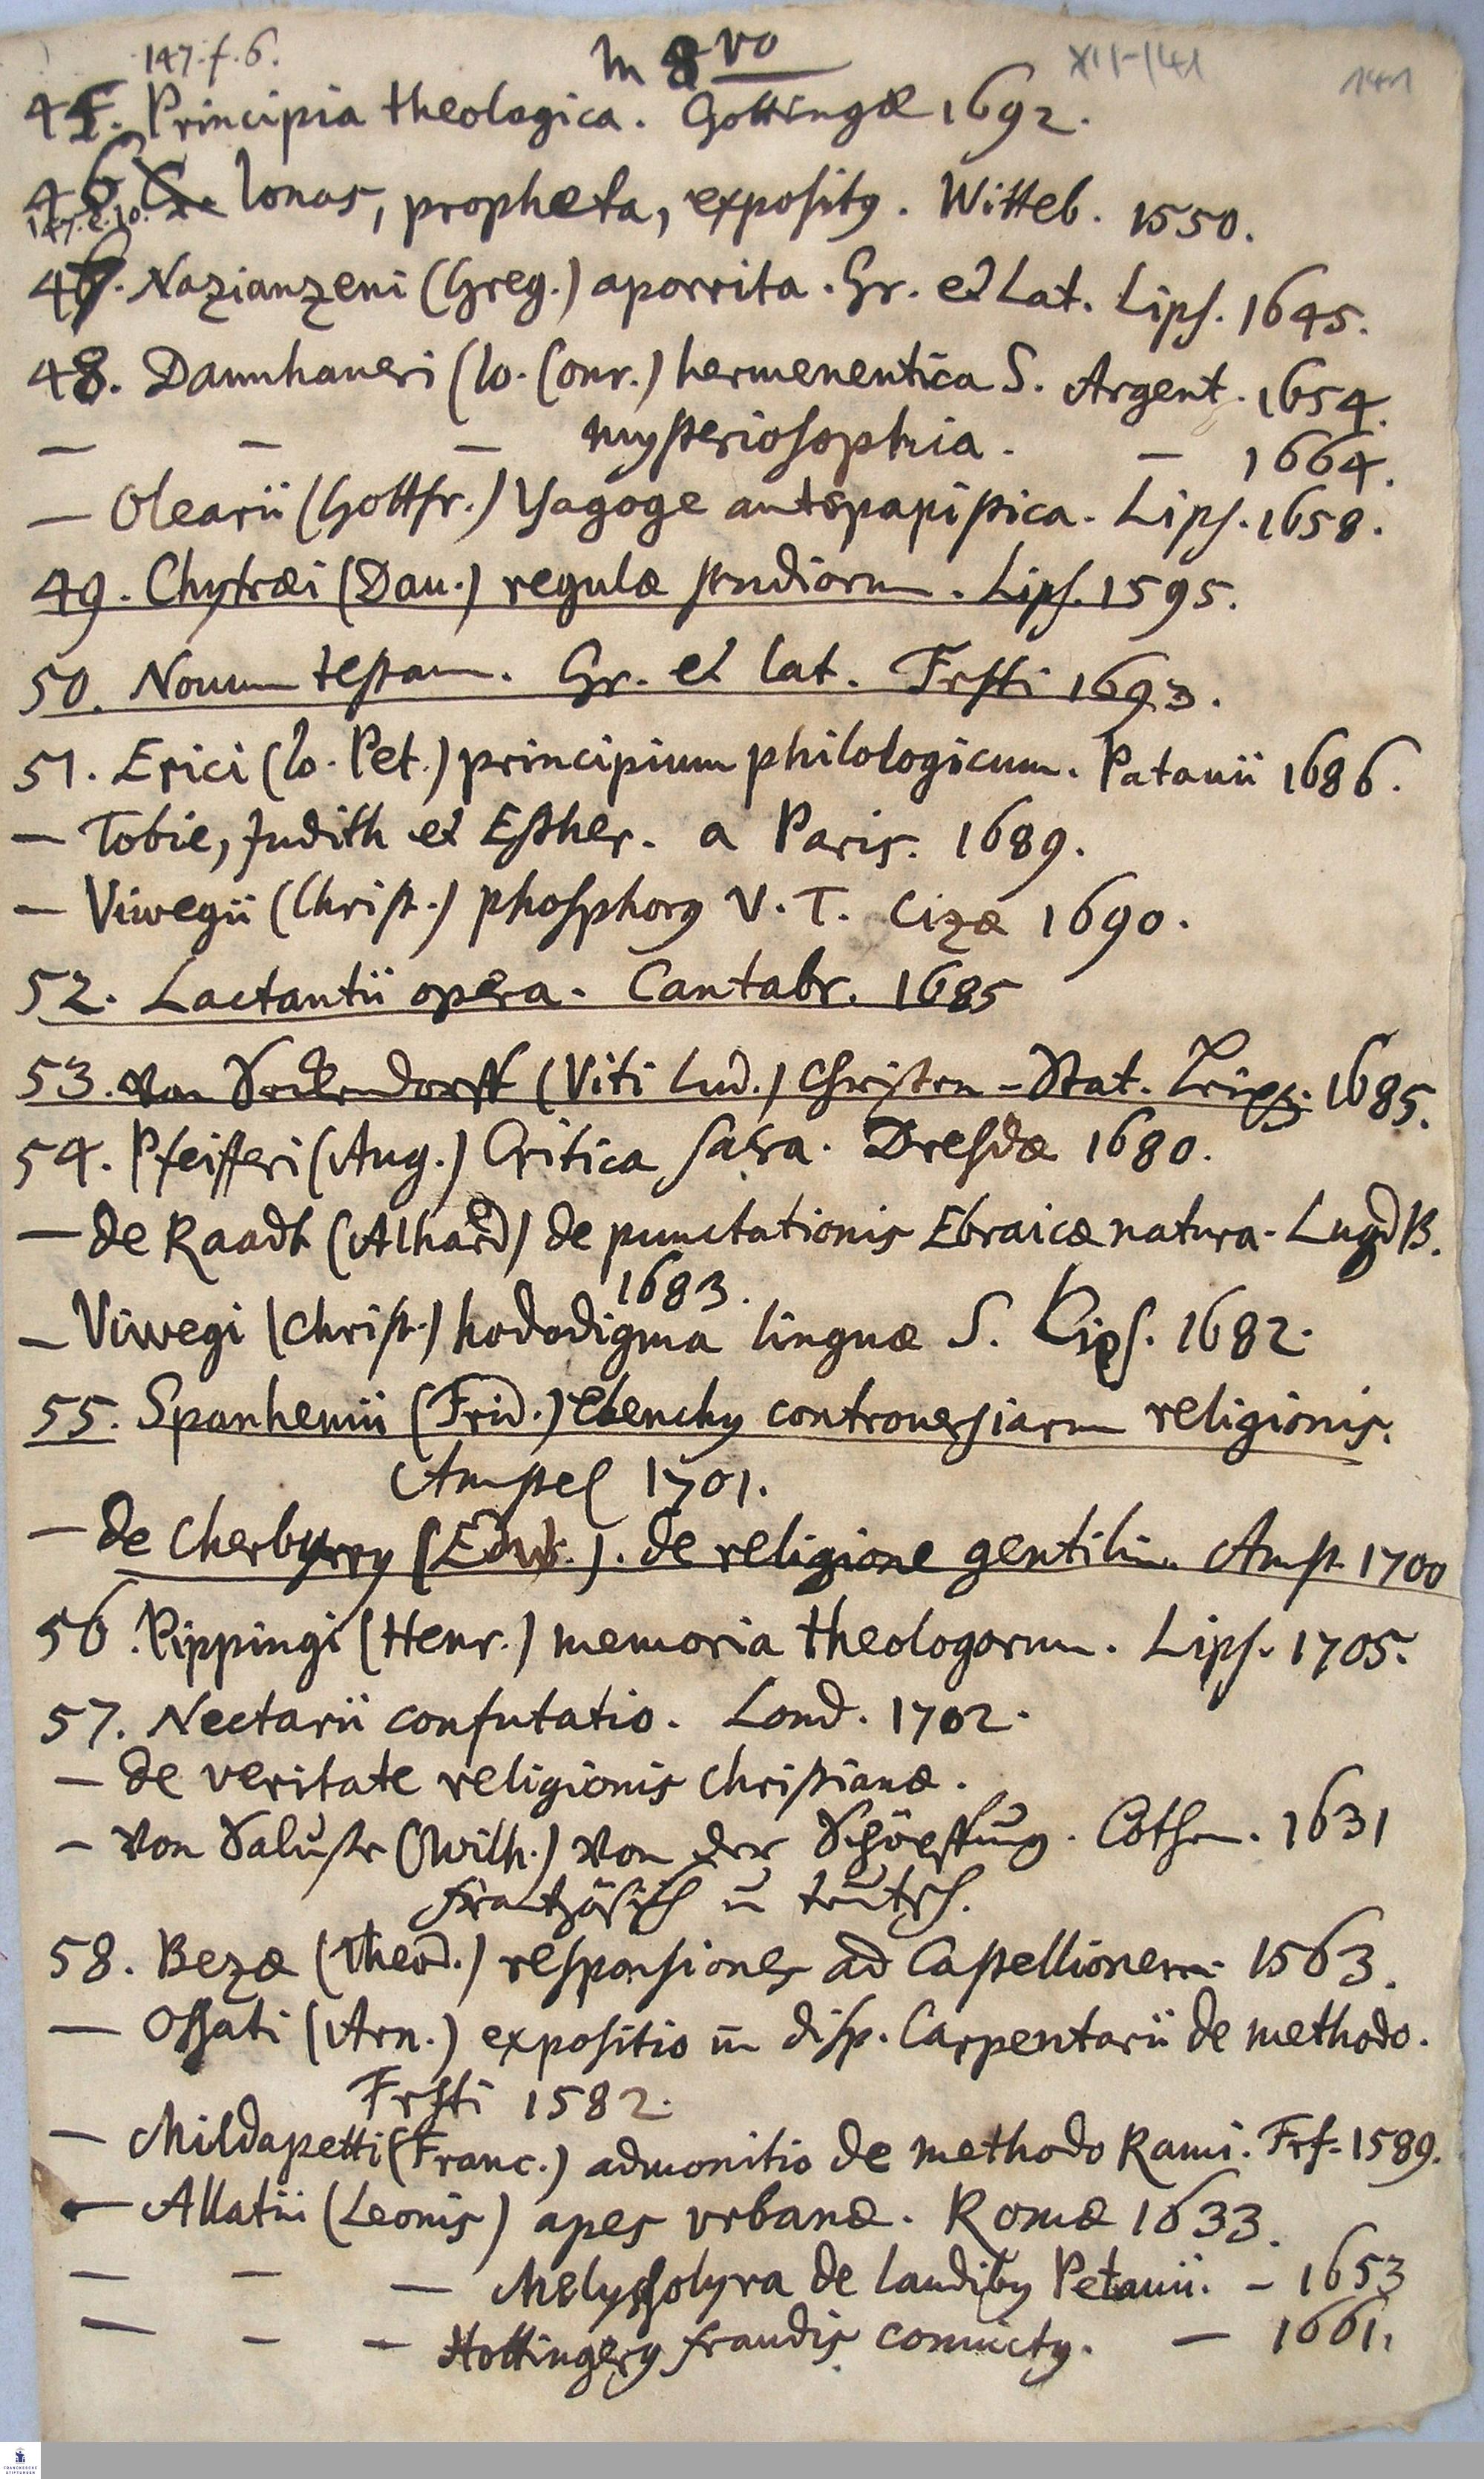 147.f.6. In 8vo XII-141 141
45. Principia theologica. Gottingæ 1692.
46 Ionas, propheta, expositꝰ. Witteb. 1550.
147.e.10.
47. Nazianzeni (Greg.) aporrita. Gr. et Lat. Lips. 1645.
48. Dannhaueri (Io. Conr.) hermeneutica S. Argent. 1654.
— — — mysteriosophia. — 1664.
— Olearii (Gottfr.) Isagoge antepapistica. Lips. 1658.
49. Chytræi (Dau.) regulæ studiorum. Lips. 1595.
50. Nouum testam. Gr. et lat. Frfti 1693.
51. Erici (Io. Pet.) principium philologicum. Patauii 1686.
— Tobie, Judith et Esther. a Paris. 1689.
— Viwegii (Christ.) phosphorꝰ V. T. Cizæ 1690.
52. Lactantii opera. Cantabr. 1685
53. von Seckendorff (Viti Lud.) Christen-Stat. Leipz. 1685.
54. Pfeifferi (Aug.) Critica sacra. Dresdæ 1680.
— de Raadt (Alhard) de punctationis Ebraicæ natura. Lugd B.
1683.
— Viwegi (Christ.) hododigma linguæ S. Lips. 1682.
55. Spanhemii (Frid.) Elenchꝰ controuersiarum religionis.
Amstel 1701.
— de Cherbury (Edw.). de religione gentilium. Amst. 1700
56. Pippingi (Henr.) memoria theologorum. Lips. 1705.
57. Nectarii confutatio. Lond. 1702.
— de veritate religionis christianæ.
— von Saluste (Wilh.) von der Schöpffung. Cöthen. 1631
frantzösisch u teutsch.
58. Bezæ (Theod.) responsiones ad Castellionem. 1563.
— Ossati (Arn.) expositio in disp. Carpentarii de methodo.
Frfti 1582.
— Mildapetti (Franc.) admonitio de methodo Rami. Frf. 1589.
— Allatii (Leonis) apes vrbanæ. Romæ 1633.
— — — Melyssolyra de laudibꝰ Petauii. — 1653
— — — Hottingerꝰ fraudis conuictꝰ. — 1661.
FRANCKESCHE
STIFTUNGEN